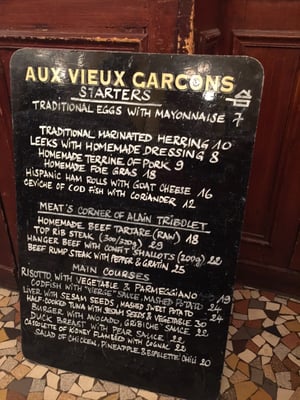 AUX VIEUX GARCONS
STARTERS
TRADITIONAL EGGS WITH MAYONNAISE 7
TRADITIONAL MARINATED HERRING 10
LEEKS WITH HOMEMADE DRESSING 8
HOMEMADE TERRINE OF PORK 9
HOMEMADE FOIE GRAS 18
HISPANIC HAM ROLLS WITH GOAT CHEESE 16
CEVICHE OF COD FISH WITH CORIANDER 12
MEAT'S CORNER OF ALAIN TRIBOLET
HOMEMADE BEEF TARTARE (RAW) 18
TOP RIB STEAK (300/320g) 29
HANGER BEEF WITH CONFIT SHALLOTS (200g) 22
BEEF RUMP STEAK WITH PEPPER & GRATIN 25
MAIN COURSES
RISOTTO WITH VEGETABLE & PARMEGGIANO 19
CODFISH WITH "VIERGE" SAUCE, MASHED POTATO 24
LIVER WITH SESAM SEEDS, MASHED SWEET POTATO 24
HALF-COOKED TUNA WITH SESAM SEEDS & VEGETABLE 30
BURGER WITH AVOCADO, GRIBICHE SAUCE 22
DUCK BREAST WITH PEAR SAUCE 22
CASSOLETTE OF KIDNEY FLAMBED WITH COGNAC 22
SALAD OF CHICKEN, PINEAPPLE & ESPELETTE CHILI 20